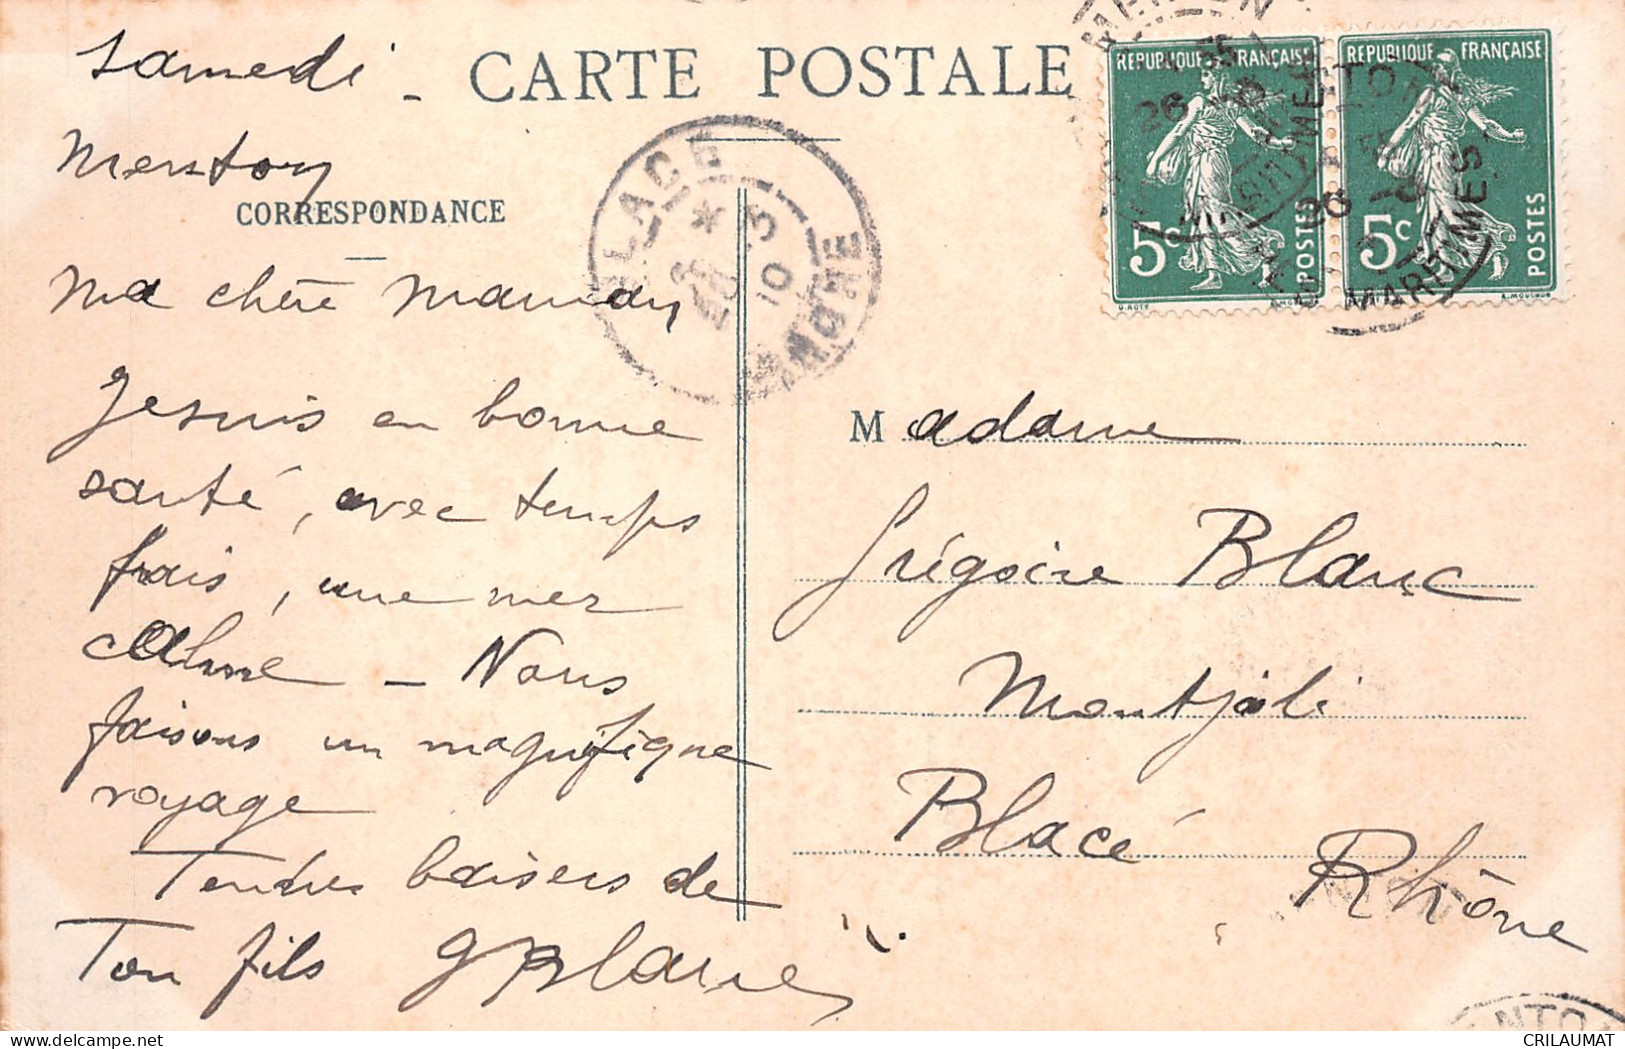 Samedi -
CARTE POSTALE
Menton
CORRESPONDANCE
Ma chère Maman
Je suis en bonne
santé, avec temps
frais, une mer
calme - Nous
faisons un magnifique
voyage
Tendres baisers de
Ton fils G Blanc
BLACE
RHONE
* 5
10
REPUBLIQUE FRANÇAISE
5c
POSTES
O. ROTY
REPUBLIQUE FRANÇAISE
5c
POSTES
A. MOUCHON
MENTON
26
MENTON
26
ALPES MARITIMES
Madame
Grégoire Blanc
Montjoli
Blacé
Rhône
MENTON
CRILAUMAT